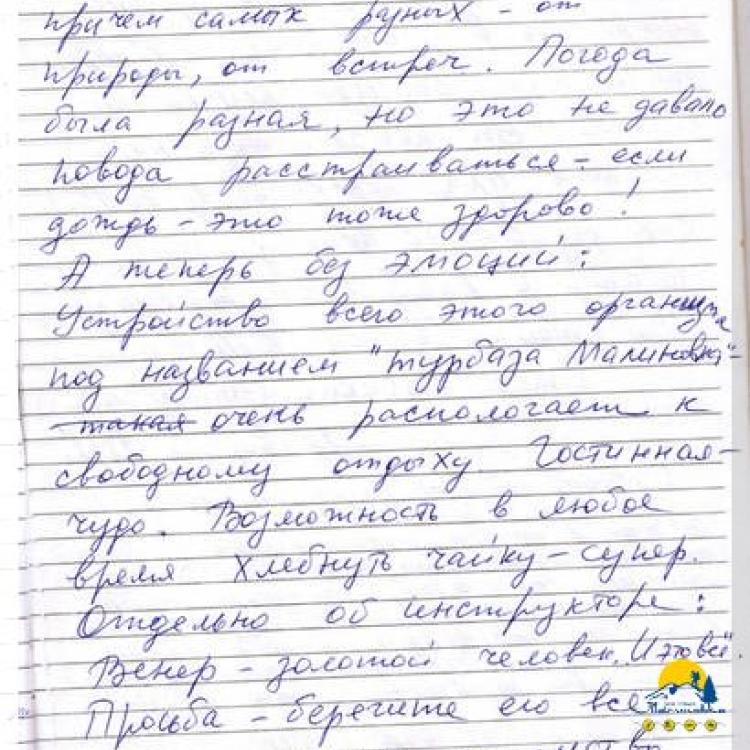 причем самых разных - от
природы, от встреч. Погода
была разная, но это не давало
повода расстраиваться - если
дождь - это тоже здорово!
А теперь без эмоций:
Устройство всего этого организма
под названием "турбаза Малиновка" -
такая очень распологает к
свободному отдыху. Гостинная -
чудо. Возможность в любое
время хлебнуть чайку - супер.
Отдельно об инструкторе:
Венер - золотой человек. И это всё.
Просьба - берегите его все